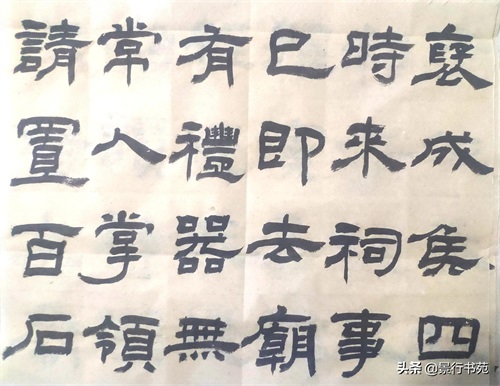 褒成侯四
時来祠事
已即去廟
有禮器無
常人掌領
請置百石
头条 @景行书苑